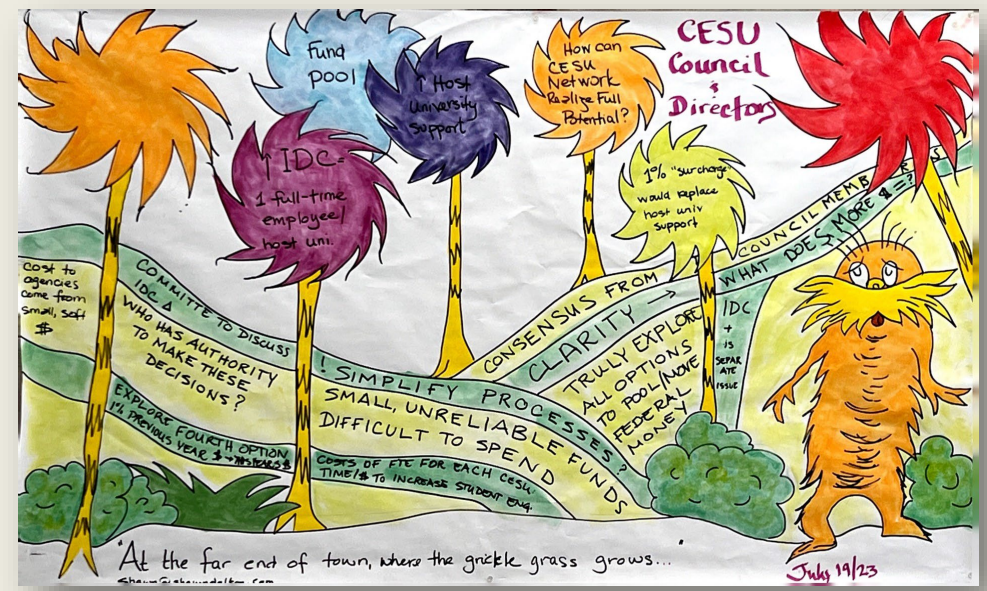 Fund
pool
↑ Host
University
support
How can
CESU
Network
Realize Full
Potential?
CESU
Council
&
Directors
↑ IDC=
1 full-time
employee/
host uni.
1% "surcharge"
would replace
host univ
support
cost to
agencies
come from
small, soft
$
COMMITTE TO DISCUSS
IDC Δ
WHO HAS AUTHORITY
TO MAKE THESE
DECISIONS?
EXPLORE FOURTH OPTION
1% PREVIOUS YEAR $
! SIMPLIFY PROCESSES?
SMALL, UNRELIABLE FUNDS
DIFFICULT TO SPEND
COSTS OF FTE FOR EACH CESU.
TIME/$ TO INCREASE STUDENT ENG.
CONSENSUS FROM COUNCIL MEMBERS
CLARITY → WHAT DOES MORE $ =?
TRULY EXPLORE
ALL OPTIONS
TO POOL/MOVE
FEDERAL
MONEY
IDC
+
IS
SEPAR
ATE
ISSUE
"At the far end of town, where the grickle grass grows..."
July 19/23